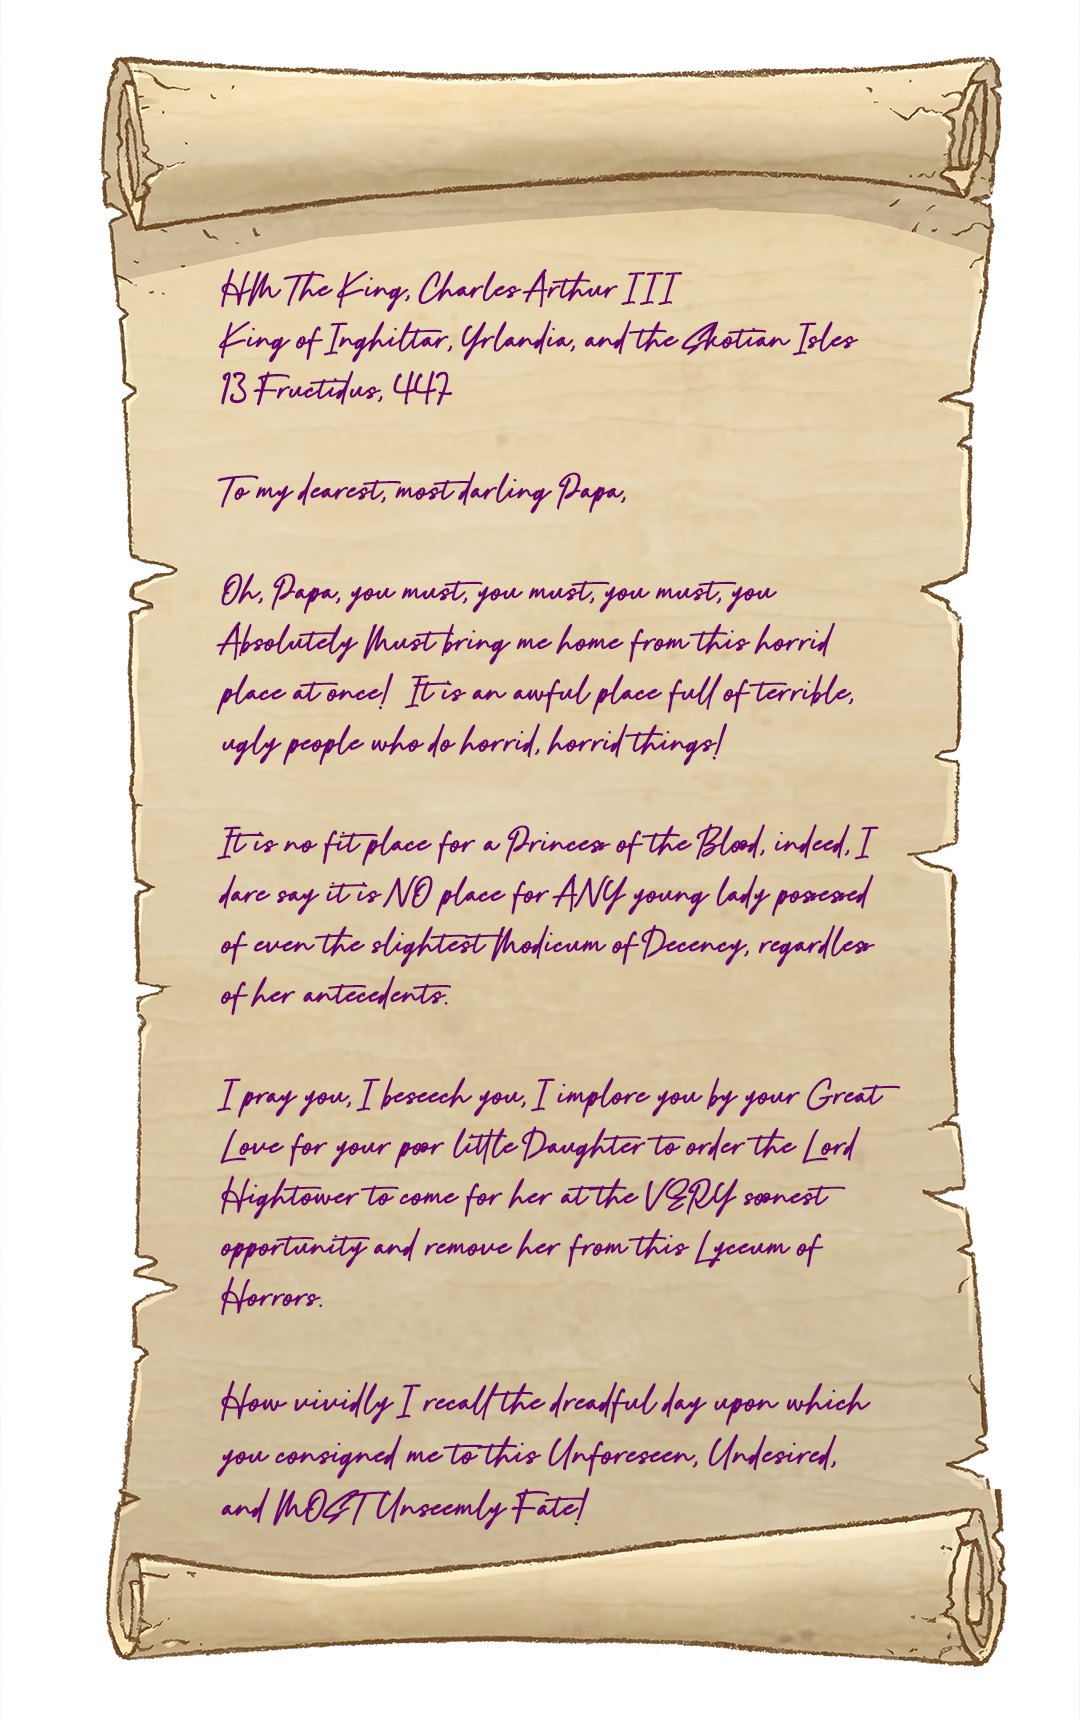 HM The King, Charles Arthur III
King of Inghiltar, Yrlandia, and the Skotian Isles
13 Fructidus, 447
To my dearest, most darling Papa,
Oh, Papa, you must, you must, you must, you
Absolutely Must bring me home from this horrid
place at once! It is an awful place full of terrible,
ugly people who do horrid, horrid things!
It is no fit place for a Princess of the Blood, indeed, I
dare say it is NO place for ANY young lady possessed
of even the slightest Modicum of Decency, regardless
of her antecedents.
I pray you, I beseech you, I implore you by your Great
Love for your poor little Daughter to order the Lord
Hightower to come for her at the VERY soonest
opportunity and remove her from this Lyceum of
Horrors.
How vividly I recall the dreadful day upon which
you consigned me to this Unforeseen, Undesired,
and MOST Unseemly Fate!